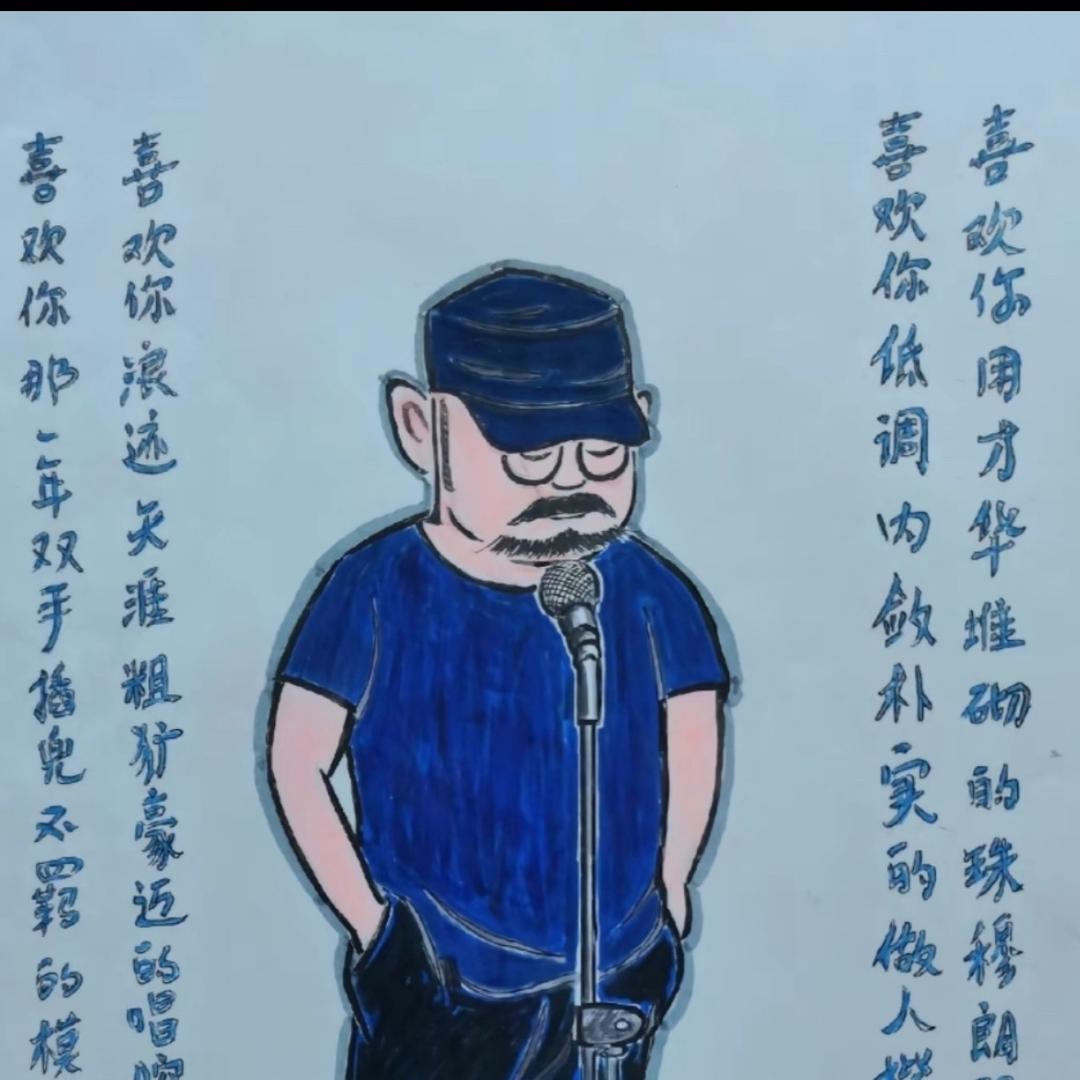 喜欢你用才华堆砌的珠穆朗
喜欢你低调内敛朴实的做人
喜欢你浪迹天涯粗犷豪迈的唱腔
喜欢你那一年双手插兜不羁的模